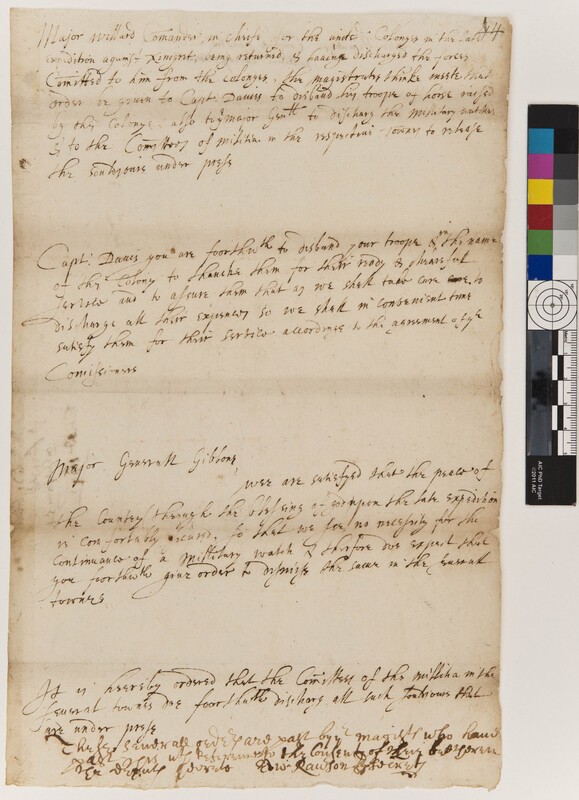 44
Major Willard Comander in cheife for the unite Colonyes in the late
expedition against Ninigret, being returned, & haveing discharged the forces
Comitted to him from the Colonyes, the magistrates thinke meete that
order be given to Capt. Davies to disband his troope of horse raised
by this Colonye, also to ye major Genll to discharg the military watches
& to the Comittees of militia in the respective townes to release
the souldjours under prese
Capt. Davies you are foorthwth to disband your troope & in the name
of this Colony to thancke them for their ready & chearefull
service and to assure them that as we shall take care to
discharge all their expences so we shall in convenient time
satisfy them for their service accordinge to the agreement of ye
Comissioners
Major Generall Gibbons,
wee are satisfyed that the peace of
the Country through the blessing of god upon the late expedition
is Comfortably so that we see no necessity for the
Continuance of a millitary watch & therfore doe expect that
you foorthwth give order to dismisse the same in the severall
townes
It is hereby ordered that the Comittees of the millitia in the
severall townes doe foorthwth discharg all such that
are under prese
These severall orders are past by ye magists who have
past this wth reference to the Consent of their bretheren
ye deputs hereto Edw Rawson Secrety